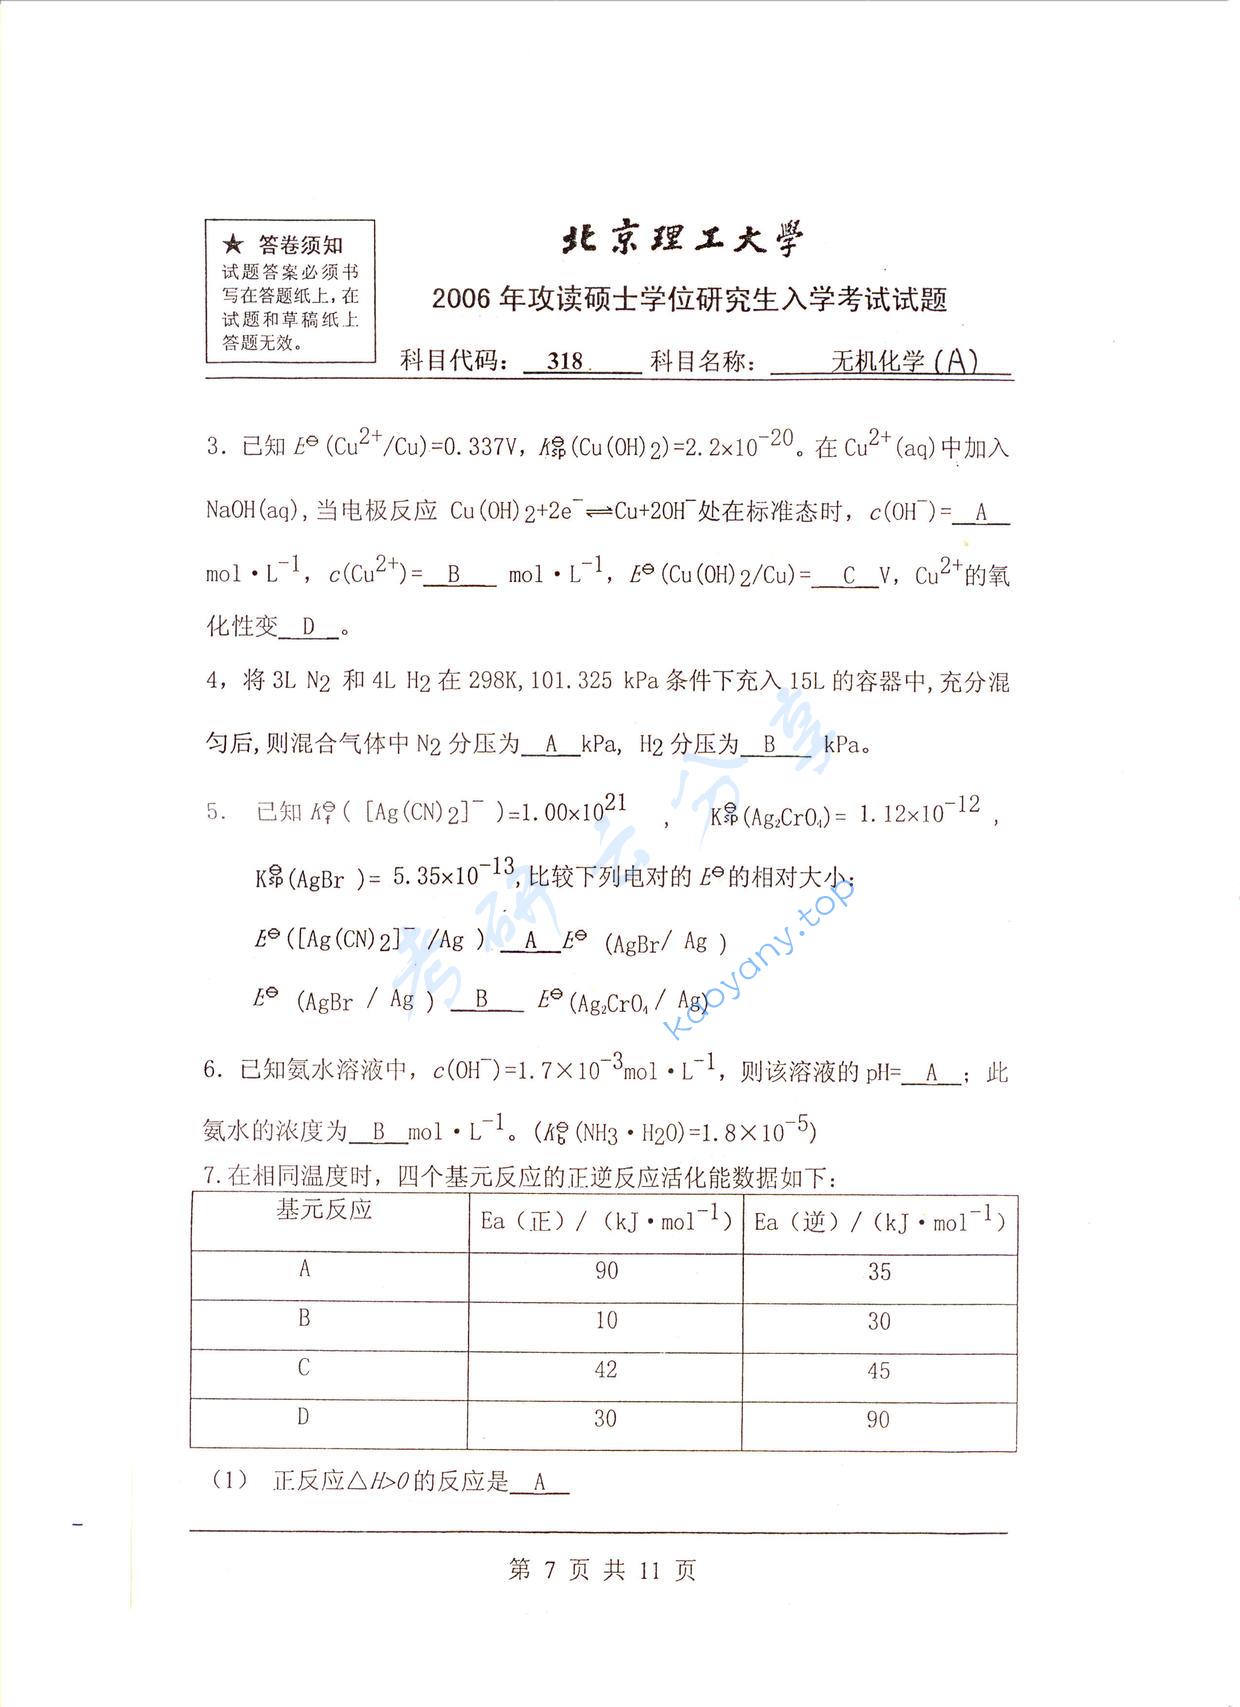 ★ 答卷须知
试题答案必须书
写在答题纸上,在
试题和草稿纸上
答题无效。
北京理工大学
2006 年攻读硕士学位研究生入学考试试题
科目代码: 318 科目名称: 无机化学 (A)
3. 已知 E⊖(Cu²⁺/Cu)=0.337V, K⊖sp(Cu(OH)2)=2.2×10⁻²⁰。在 Cu²⁺(aq)中加入
NaOH(aq),当电极反应 Cu(OH)2+2e⁻⇌Cu+2OH⁻处在标准态时, c(OH⁻)= A
mol·L⁻¹, c(Cu²⁺)= B mol·L⁻¹, E⊖(Cu(OH)2/Cu)= C V, Cu²⁺的氧
化性变 D 。
4, 将 3L N2 和 4L H2 在 298K,101.325 kPa 条件下充入 15L 的容器中,充分混
匀后,则混合气体中 N2 分压为 A kPa, H2 分压为 B kPa。
5. 已知 K⊖f ( [Ag(CN)2]⁻ )=1.00×10²¹ , K⊖sp(Ag₂CrO₄)= 1.12×10⁻¹² ,
K⊖sp(AgBr )= 5.35×10⁻¹³,比较下列电对的 E⊖的相对大小:
E⊖([Ag(CN)2]⁻ /Ag ) A E⊖ (AgBr/ Ag )
E⊖ (AgBr / Ag ) B E⊖(Ag₂CrO₄/ Ag)
6. 已知氨水溶液中, c(OH⁻)=1.7×10⁻³mol·L⁻¹, 则该溶液的 pH= A ; 此
氨水的浓度为 B mol·L⁻¹。(K⊖b(NH3·H2O)=1.8×10⁻⁵)
7.在相同温度时, 四个基元反应的正逆反应活化能数据如下:
基元反应 Ea(正)/(kJ·mol⁻¹) Ea(逆)/(kJ·mol⁻¹)
A 90 35
B 10 30
C 42 45
D 30 90
(1) 正反应△H>0的反应是 A
第 7 页 共 11 页
考研云分享
kaoyany.top